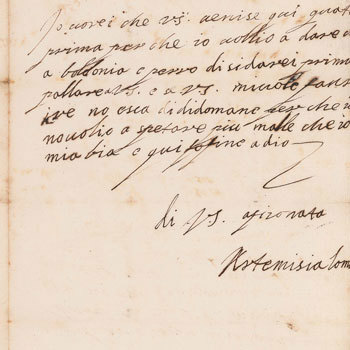 Io vorei che VS. venise qui quat
prima perche io vollio a dare a
a bologonia e perro disidarei prima
parlare VS. e a VS.
ive no esca di didomane per che i
no volio a spetare piu malle che io
mia bia e qui fo fine adio
di VS. afizonata
Artemisia Lom